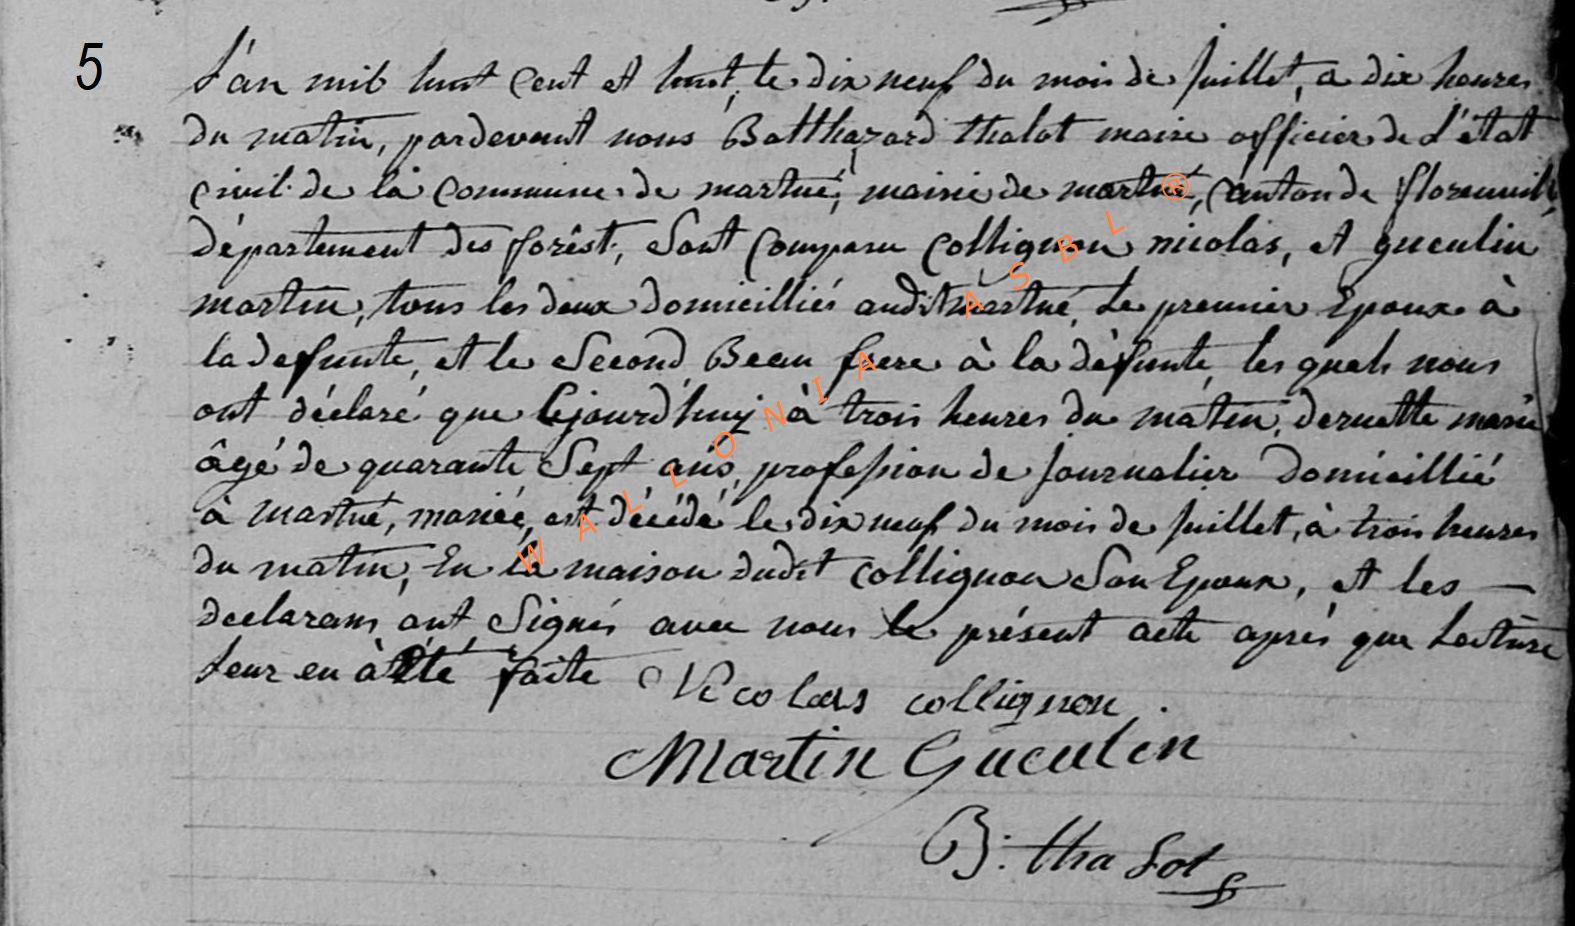 5
L'an mil huit Cent et huit, le dix neuf du mois de Juillet, a dix heures
du matin, pardevant nous Balthazard thalot maire officier de L'état
civil de la Commune de martué, mairie de martué, Canton de florenville,
département des forêst, Sont Comparu Collignon nicolas, et gueulin
martin, tous les deux domicilliés audit martué, Le premier Epoux à
la defunte, et le Second Beau frere à la défunte, les quels nous
ont déclaré que Cejourd'huy à trois heures du matin, dernette marie
âgé de quarante Sept ans, profession de Journalier Domicillié
à martué, mariée, est décédé le dix neuf du mois de Juillet, à trois heures
du matin, En la maison dudit Collignon Son Epoux, et les
declarans ont Signés avec nous le présent acte aprés que Lecture
Leur en à été faite Nicolas collignon.
Martin Gueulin
B: thalot
WALLONIA ASBL ®